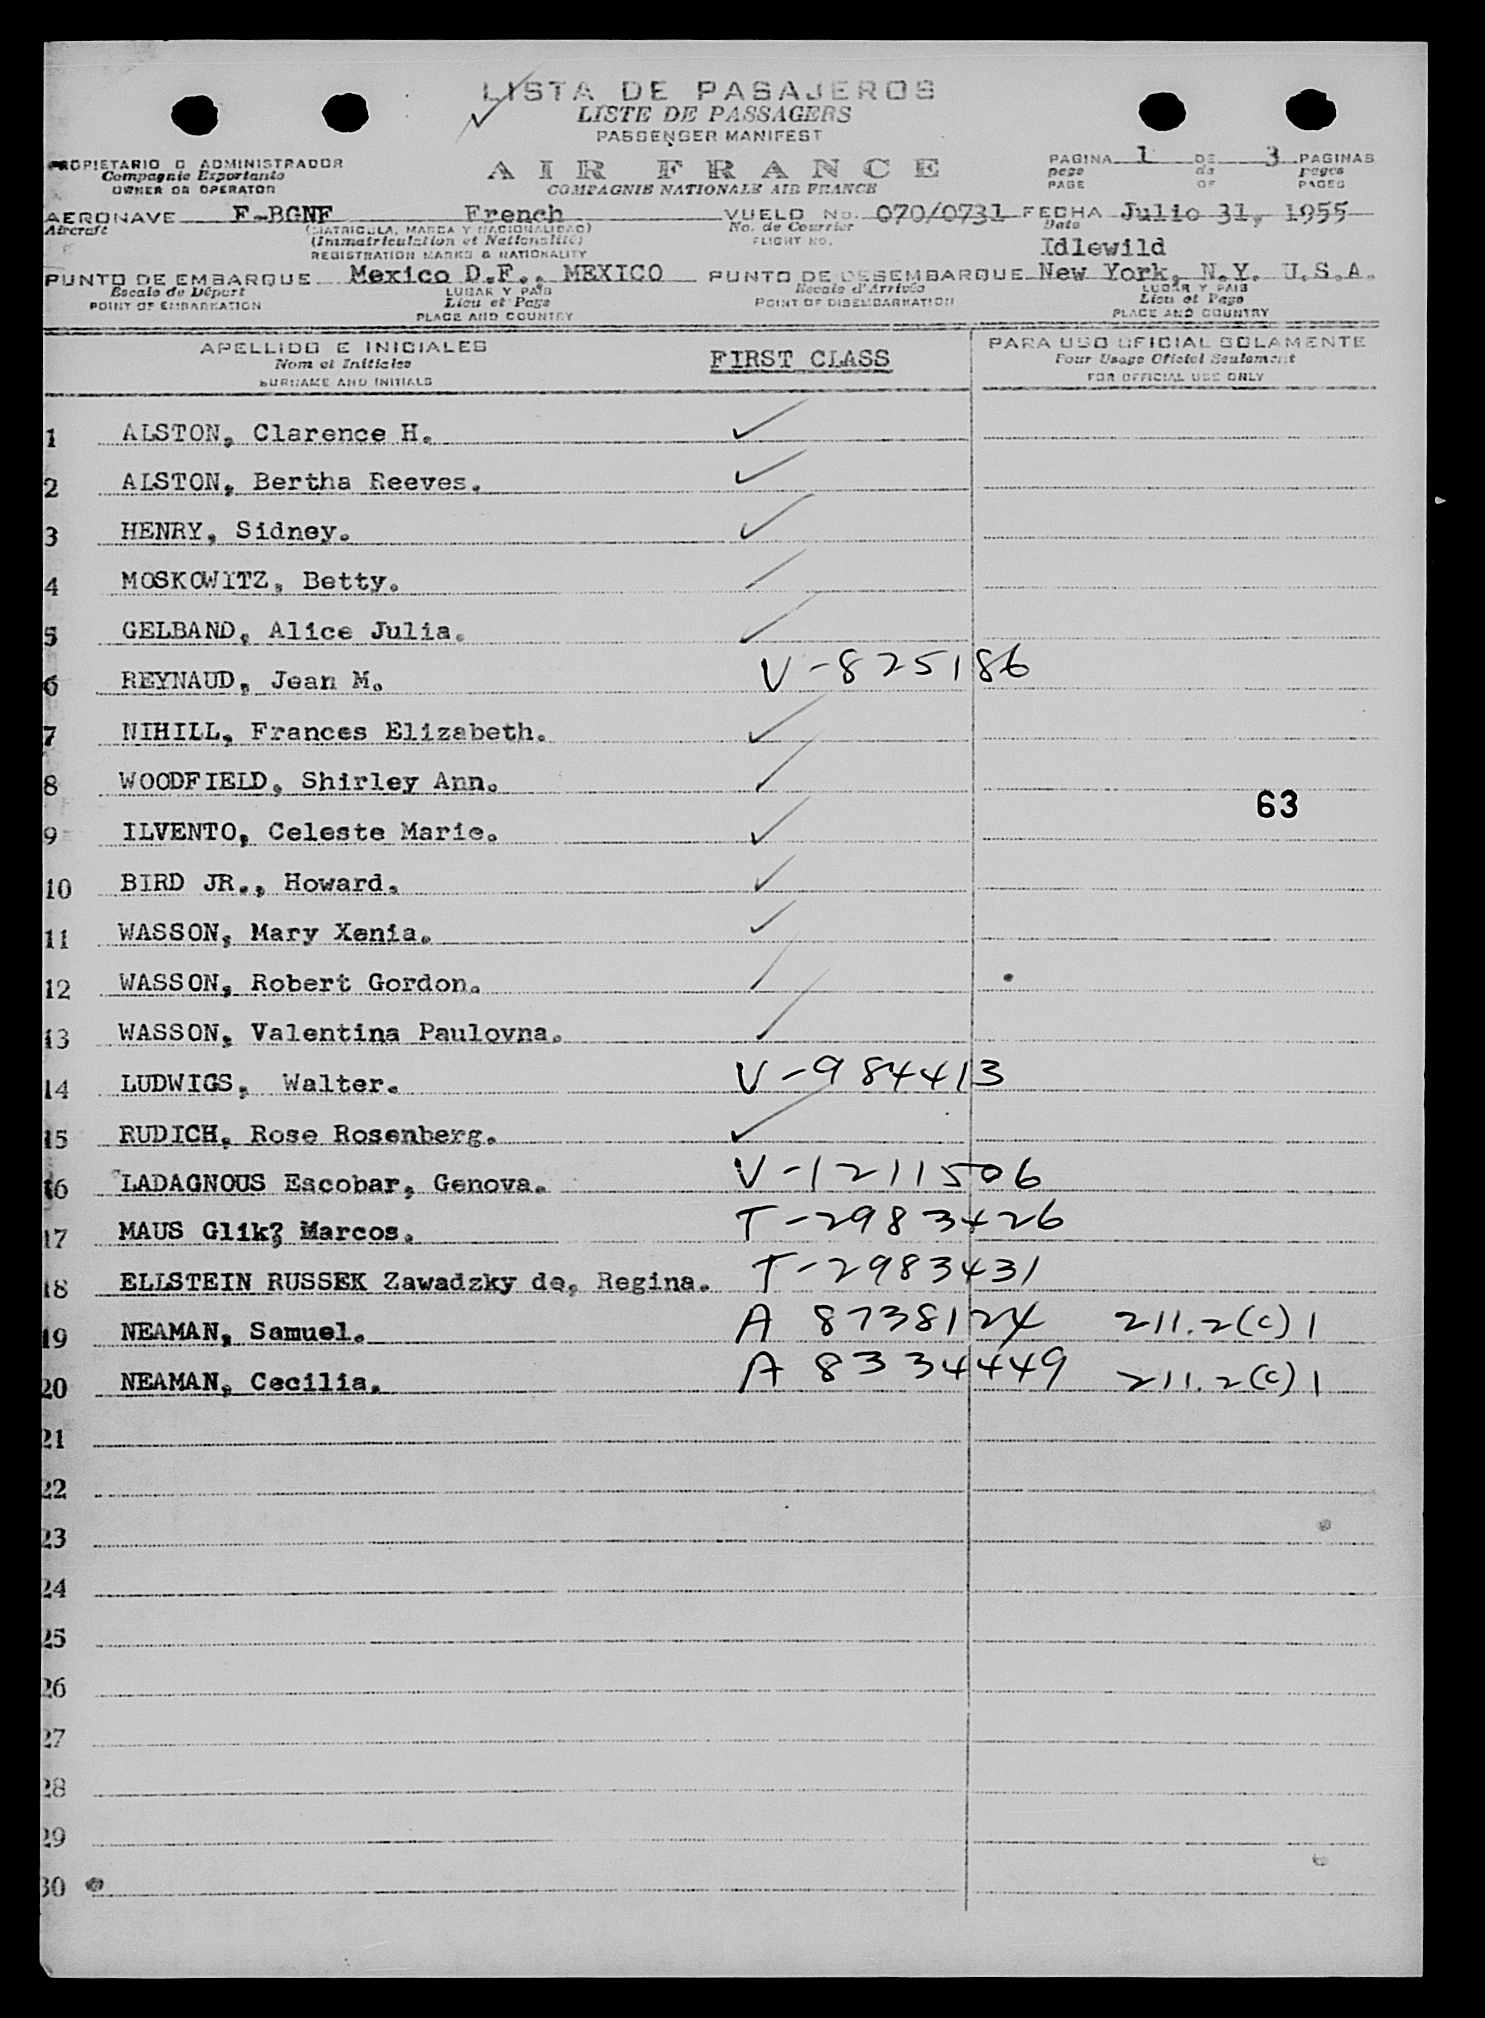 LISTA DE PASAJEROS
LISTE DE PASSAGERS
PASSENGER MANIFEST
PROPIETARIO O ADMINISTRADOR
Compagnie Exportante
OWNER OR OPERATOR
AIR FRANCE
COMPAGNIE NATIONALE AIR FRANCE
PAGINA 1 DE 3 PAGINAS
page de pages
PAGE OF PAGES
AERONAVE F-BGNF French VUELO No. 070/0731 FECHA Julio 31, 1955
Aircraft (MATRICULA, MARCA Y NACIONALIDAD) No. de Courrier Date
(Immatriculation et Nationalité) FLIGHT NO.
REGISTRATION MARKS & NATIONALITY
Idlewild
PUNTO DE EMBARQUE Mexico D.F., MEXICO PUNTO DE DESEMBARQUE New York, N.Y. U.S.A.
Escale de Départ LUGAR Y PAIS Escale d'Arrivée LUGAR Y PAIS
POINT OF EMBARKATION Lieu et Pays POINT OF DISEMBARKATION Lieu et Pays
PLACE AND COUNTRY PLACE AND COUNTRY
APELLIDO E INICIALES FIRST CLASS PARA USO OFICIAL SOLAMENTE
Nom et Initiales Pour Usage Officiel Seulement
SURNAME AND INITIALS FOR OFFICIAL USE ONLY
1 ALSTON, Clarence H.
2 ALSTON, Bertha Reeves.
3 HENRY, Sidney.
4 MOSKOWITZ, Betty.
5 GELBAND, Alice Julia.
6 REYNAUD, Jean M. V-825186
7 NIHILL, Frances Elizabeth.
8 WOODFIELD, Shirley Ann.
63
9 ILVENTO, Celeste Marie.
10 BIRD JR., Howard.
11 WASSON, Mary Xenia.
12 WASSON, Robert Gordon.
13 WASSON, Valentina Paulovna.
14 LUDWIGS, Walter. V-984413
15 RUDICH, Rose Rosenberg.
16 LADAGNOUS Escobar, Genova. V-1211506
17 MAUS Glik, Marcos. T-2983426
18 ELLSTEIN RUSSEK Zawadzky de, Regina. T-2983431
19 NEAMAN, Samuel. A 8738124 211.2(c)1
20 NEAMAN, Cecilia. A 8334449 211.2(c)1
21
22
23
24
25
26
27
28
29
30